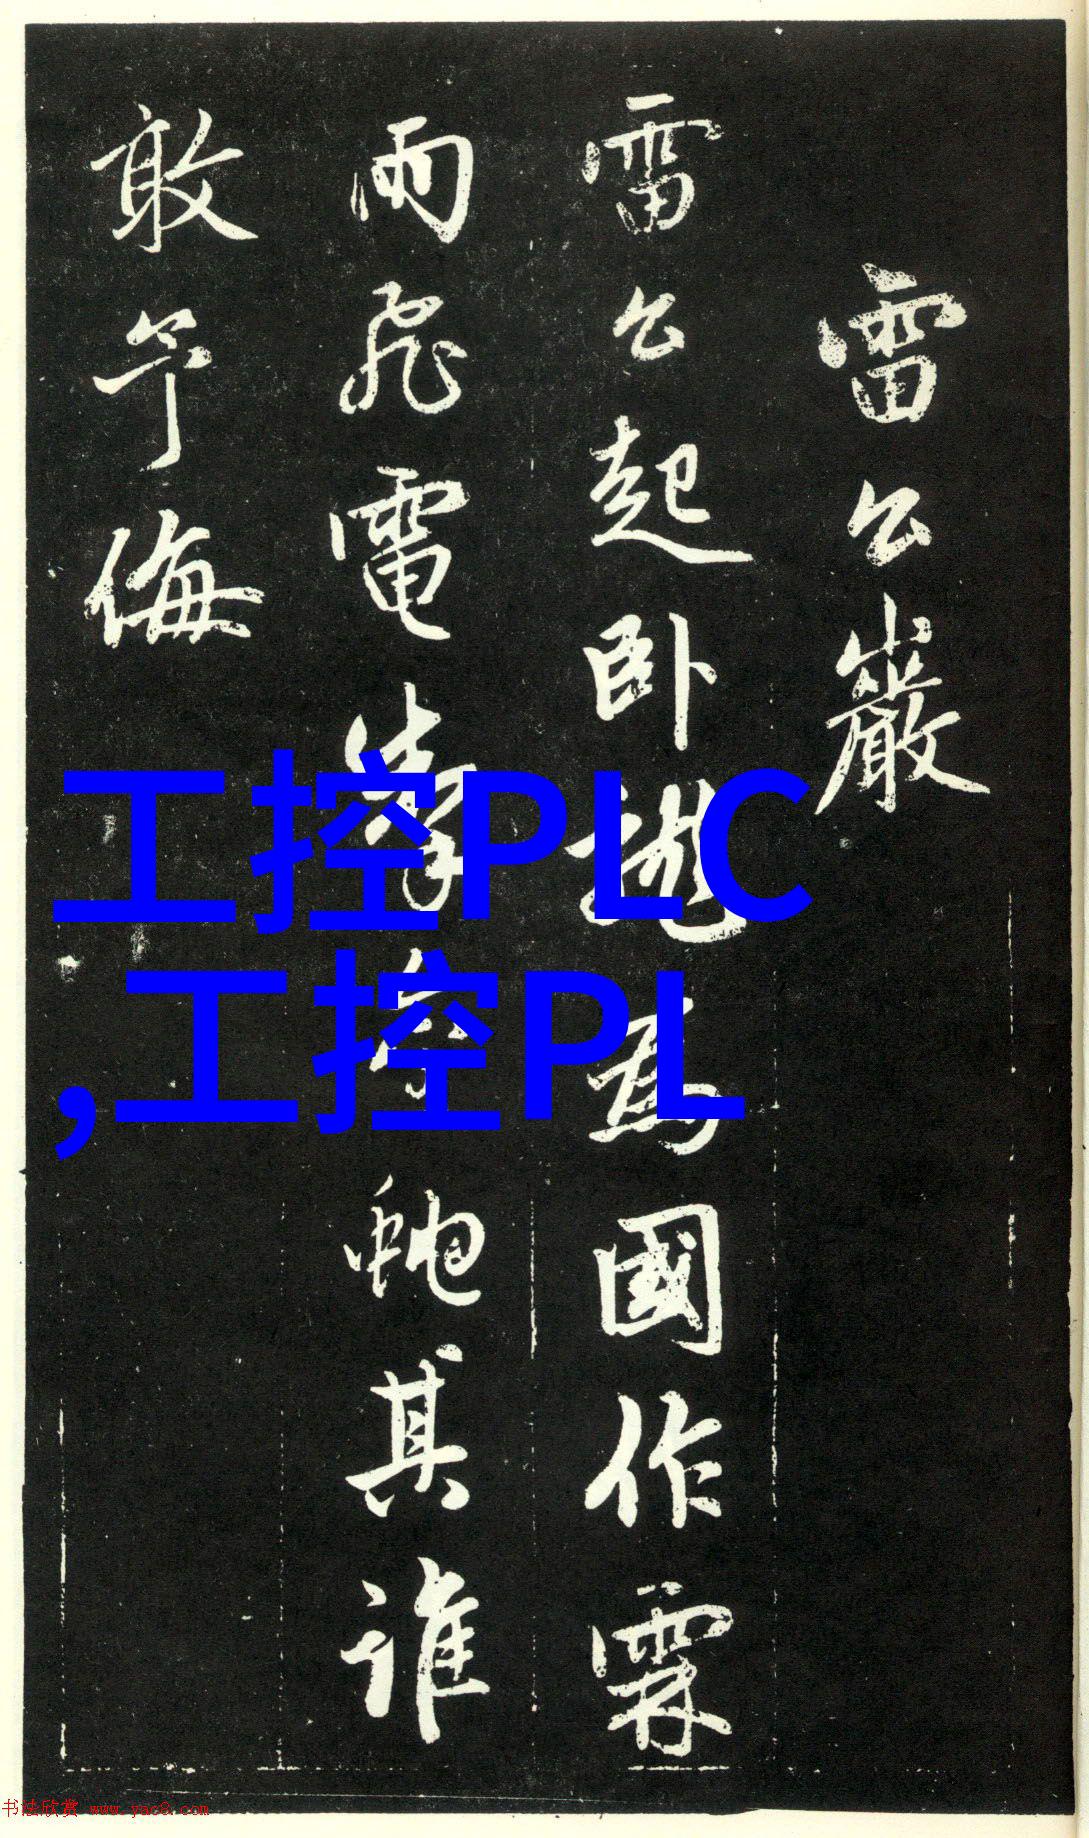 雷公巖
雷公起卧龍為國作霖
雨飛電掣虵其誰
敢予侮
工控PLC
,工控PL
书法欣赏 www.yac8.com